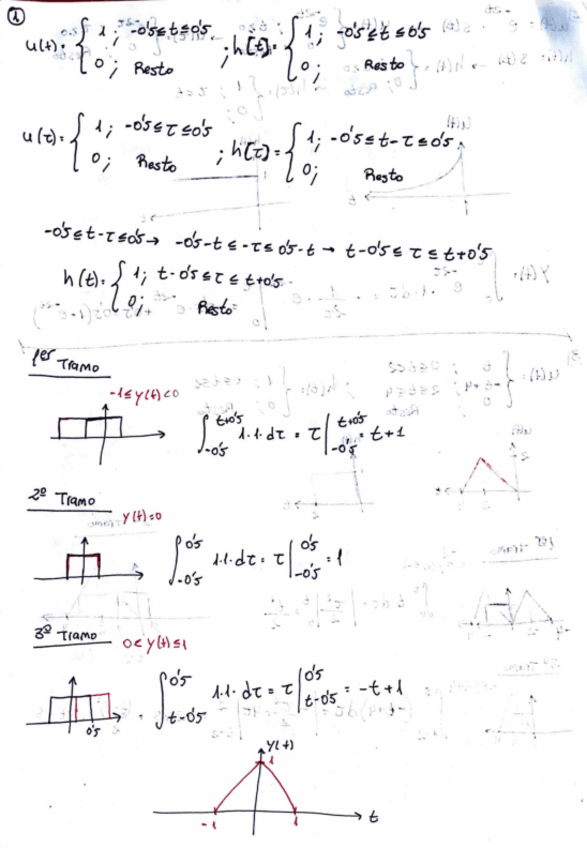 ①
u(t) = { 1 ; -0'5 ≤ t ≤ 0'5 ; h(t) = { 1 ; -0'5 ≤ t ≤ 0'5
0 ; Resto 0 ; Resto
u(τ) = { 1 ; -0'5 ≤ τ ≤ 0'5 ; h(τ) = { 1 ; -0'5 ≤ t-τ ≤ 0'5
0 ; Resto 0 ; Resto
-0'5 ≤ t-τ ≤ 0'5 → -0'5-t ≤ -τ ≤ 0'5-t → t-0'5 ≤ τ ≤ t+0'5
h(t) = { 1 ; t-0'5 ≤ τ ≤ t+0'5
0 ; Resto
1er Tramo
-1 ≤ y(t) < 0
∫_{-0'5}^{t+0'5} 1·1·dτ = τ |_{-0'5}^{t+0'5} = t+1
2º Tramo
y(t)=0
∫_{-0'5}^{0'5} 1·1·dτ = τ |_{-0'5}^{0'5} = 1
3º Tramo
0 < y(t) ≤ 1
∫_{t-0'5}^{0'5} 1·1·dτ = τ |_{t-0'5}^{0'5} = -t+1
0'5
y(t)
1
-1 1 t